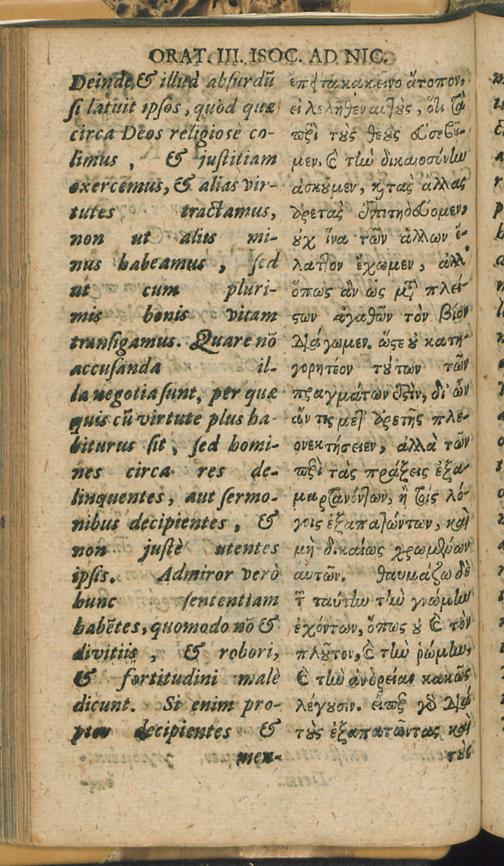 ORAT. III. ISOC. AD NIC.
Deinde & illud absurdū
si latuit ipsos, quòd quæ
circa Deos religiosè co-
limus, & justitiam
exercemus, & alias vir-
tutes tractamus,
non ut aliis mi-
nus habeamus, sed
ut cum pluri-
mis bonis vitam
transigamus. Quare nō
accusanda il-
la negotia sunt, per quæ
quis cū virtute plus ha-
biturus sit, sed homi-
nes circa res de-
linquentes, aut sermo-
nibus decipientes, &
non justè utentes
ipsis. Admiror verò
hunc sententiam
habētes, quomodo nō &
divitiis, & robori,
& fortitudini malè
dicunt. Si enim pro-
pter decipientes &
men-
ἔπειτα κακεῖνο ἄτοπον,
εἰ λέληθεν αὐτοὺς, ὅτι τὰ
περὶ τοὺς θεοὺς εὐσεβοῦ-
μεν, καὶ τὴν δικαιοσύνην
ἀσκοῦμεν, καὶ τὰς ἄλλας
ἀρετὰς ἐπιτηδεύομεν,
οὐχ ἵνα τῶν ἄλλων ἔ-
λαττον ἔχωμεν, ἀλλ'
ὅπως ἂν ὡς μετὰ πλεί-
στων ἀγαθῶν τὸν βίον
διάγωμεν. ὥστε οὐ κατη-
γορητέον τούτων τῶν
πραγμάτων ἐστὶν, δι' ὧν
ἄν τις μετ' ἀρετῆς πλε-
ονεκτήσειεν, ἀλλὰ τῶν
περὶ τὰς πράξεις ἐξα-
μαρτανόντων, ἢ τοῖς λό-
γοις ἐξαπατώντων, καὶ
μὴ δικαίως χρωμένων
αὐτῶν. θαυμάζω δὲ
τ ταύτην τὴν γνώμην
ἐχόντων, ὅπως οὐ καὶ τὸν
πλοῦτον, καὶ τὴν ῥώμην,
καὶ τὴν ἀνδρείαν κακῶς
λέγουσιν. εἴπερ γὰρ διὰ
τοὺς ἐξαπατῶντας καὶ
τοὺς